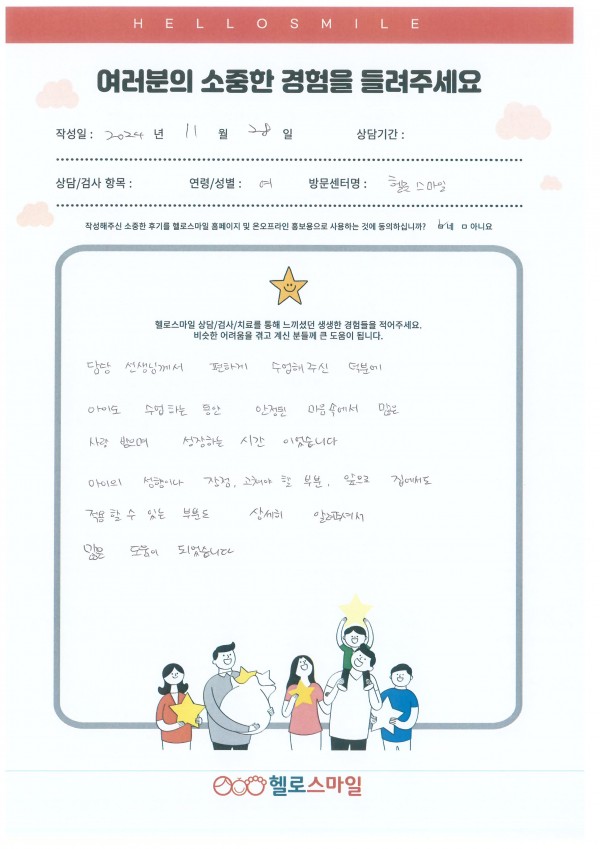 HELLOSMILE
여러분의 소중한 경험을 들려주세요
작성일 : 2024 년 11 월 28 일 상담기간 :
상담/검사 항목 : 연령/성별 : 여 방문센터명 : 헬로스마일
작성해주신 소중한 후기를 헬로스마일 홈페이지 및 온오프라인 홍보용으로 사용하는 것에 동의하십니까? ☑네 □아니요
헬로스마일 상담/검사/치료를 통해 느끼셨던 생생한 경험들을 적어주세요.
비슷한 어려움을 겪고 계신 분들께 큰 도움이 됩니다.
담당 선생님께서 편하게 수업해주신 덕분에
아이도 수업하는 동안 안정된 마음속에서 많은
사랑 받으며 성장하는 시간 이었습니다
아이의 성향이나 장점, 고쳐야 할 부분, 앞으로 집에서도
적용 할 수 있는 부분도 상세히 알려주셔서
많은 도움이 되었습니다
헬로스마일